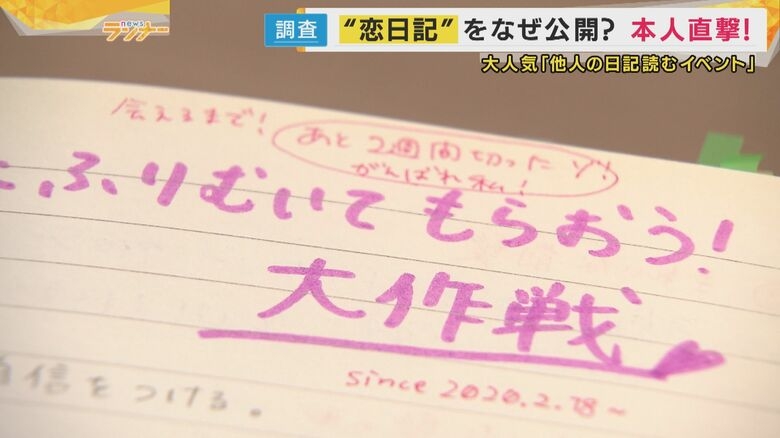 news
ランナー
調査
“恋日記”をなぜ公開? 本人直撃!
大人気「他人の日記読むイベント」
会えるまで!
あと2週間切ったゾ!
がんばれ私!
ふりむいてもらおう!
大作戦
since 2020.2.28~
自信をつける。